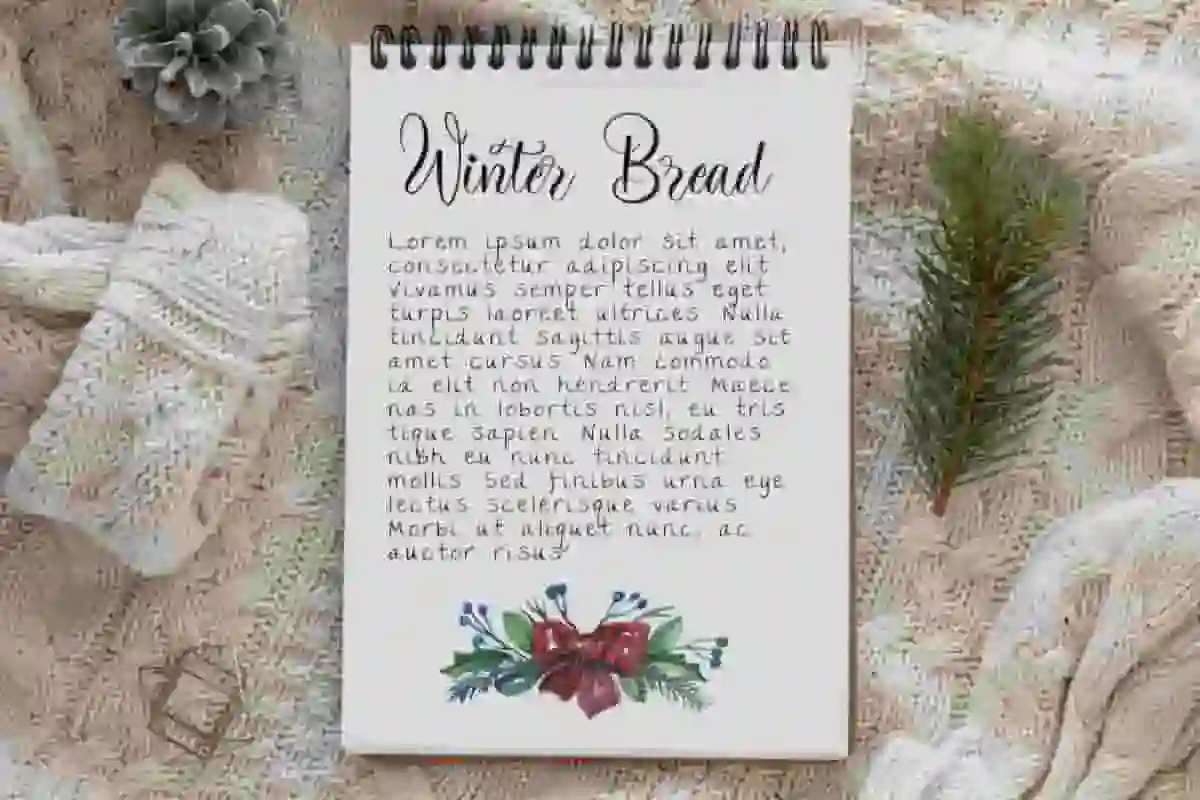 Winter Bread
Lorem ipsum dolor sit amet,
consectetur adipiscing elit
Vivamus semper tellus eget
turpis laoreet ultrices Nulla
tincidunt sagittis augue sit
amet cursus Nam commodo
ia elit non hendrerit Maece
nas in lobortis nisl, eu tris
tique sapien Nulla sodales
nibh eu nunc tincidunt
mollis Sed finibus urna ege
lectus scelerisque varius
Morbi ut aliquet nunc, ac
auctor risus